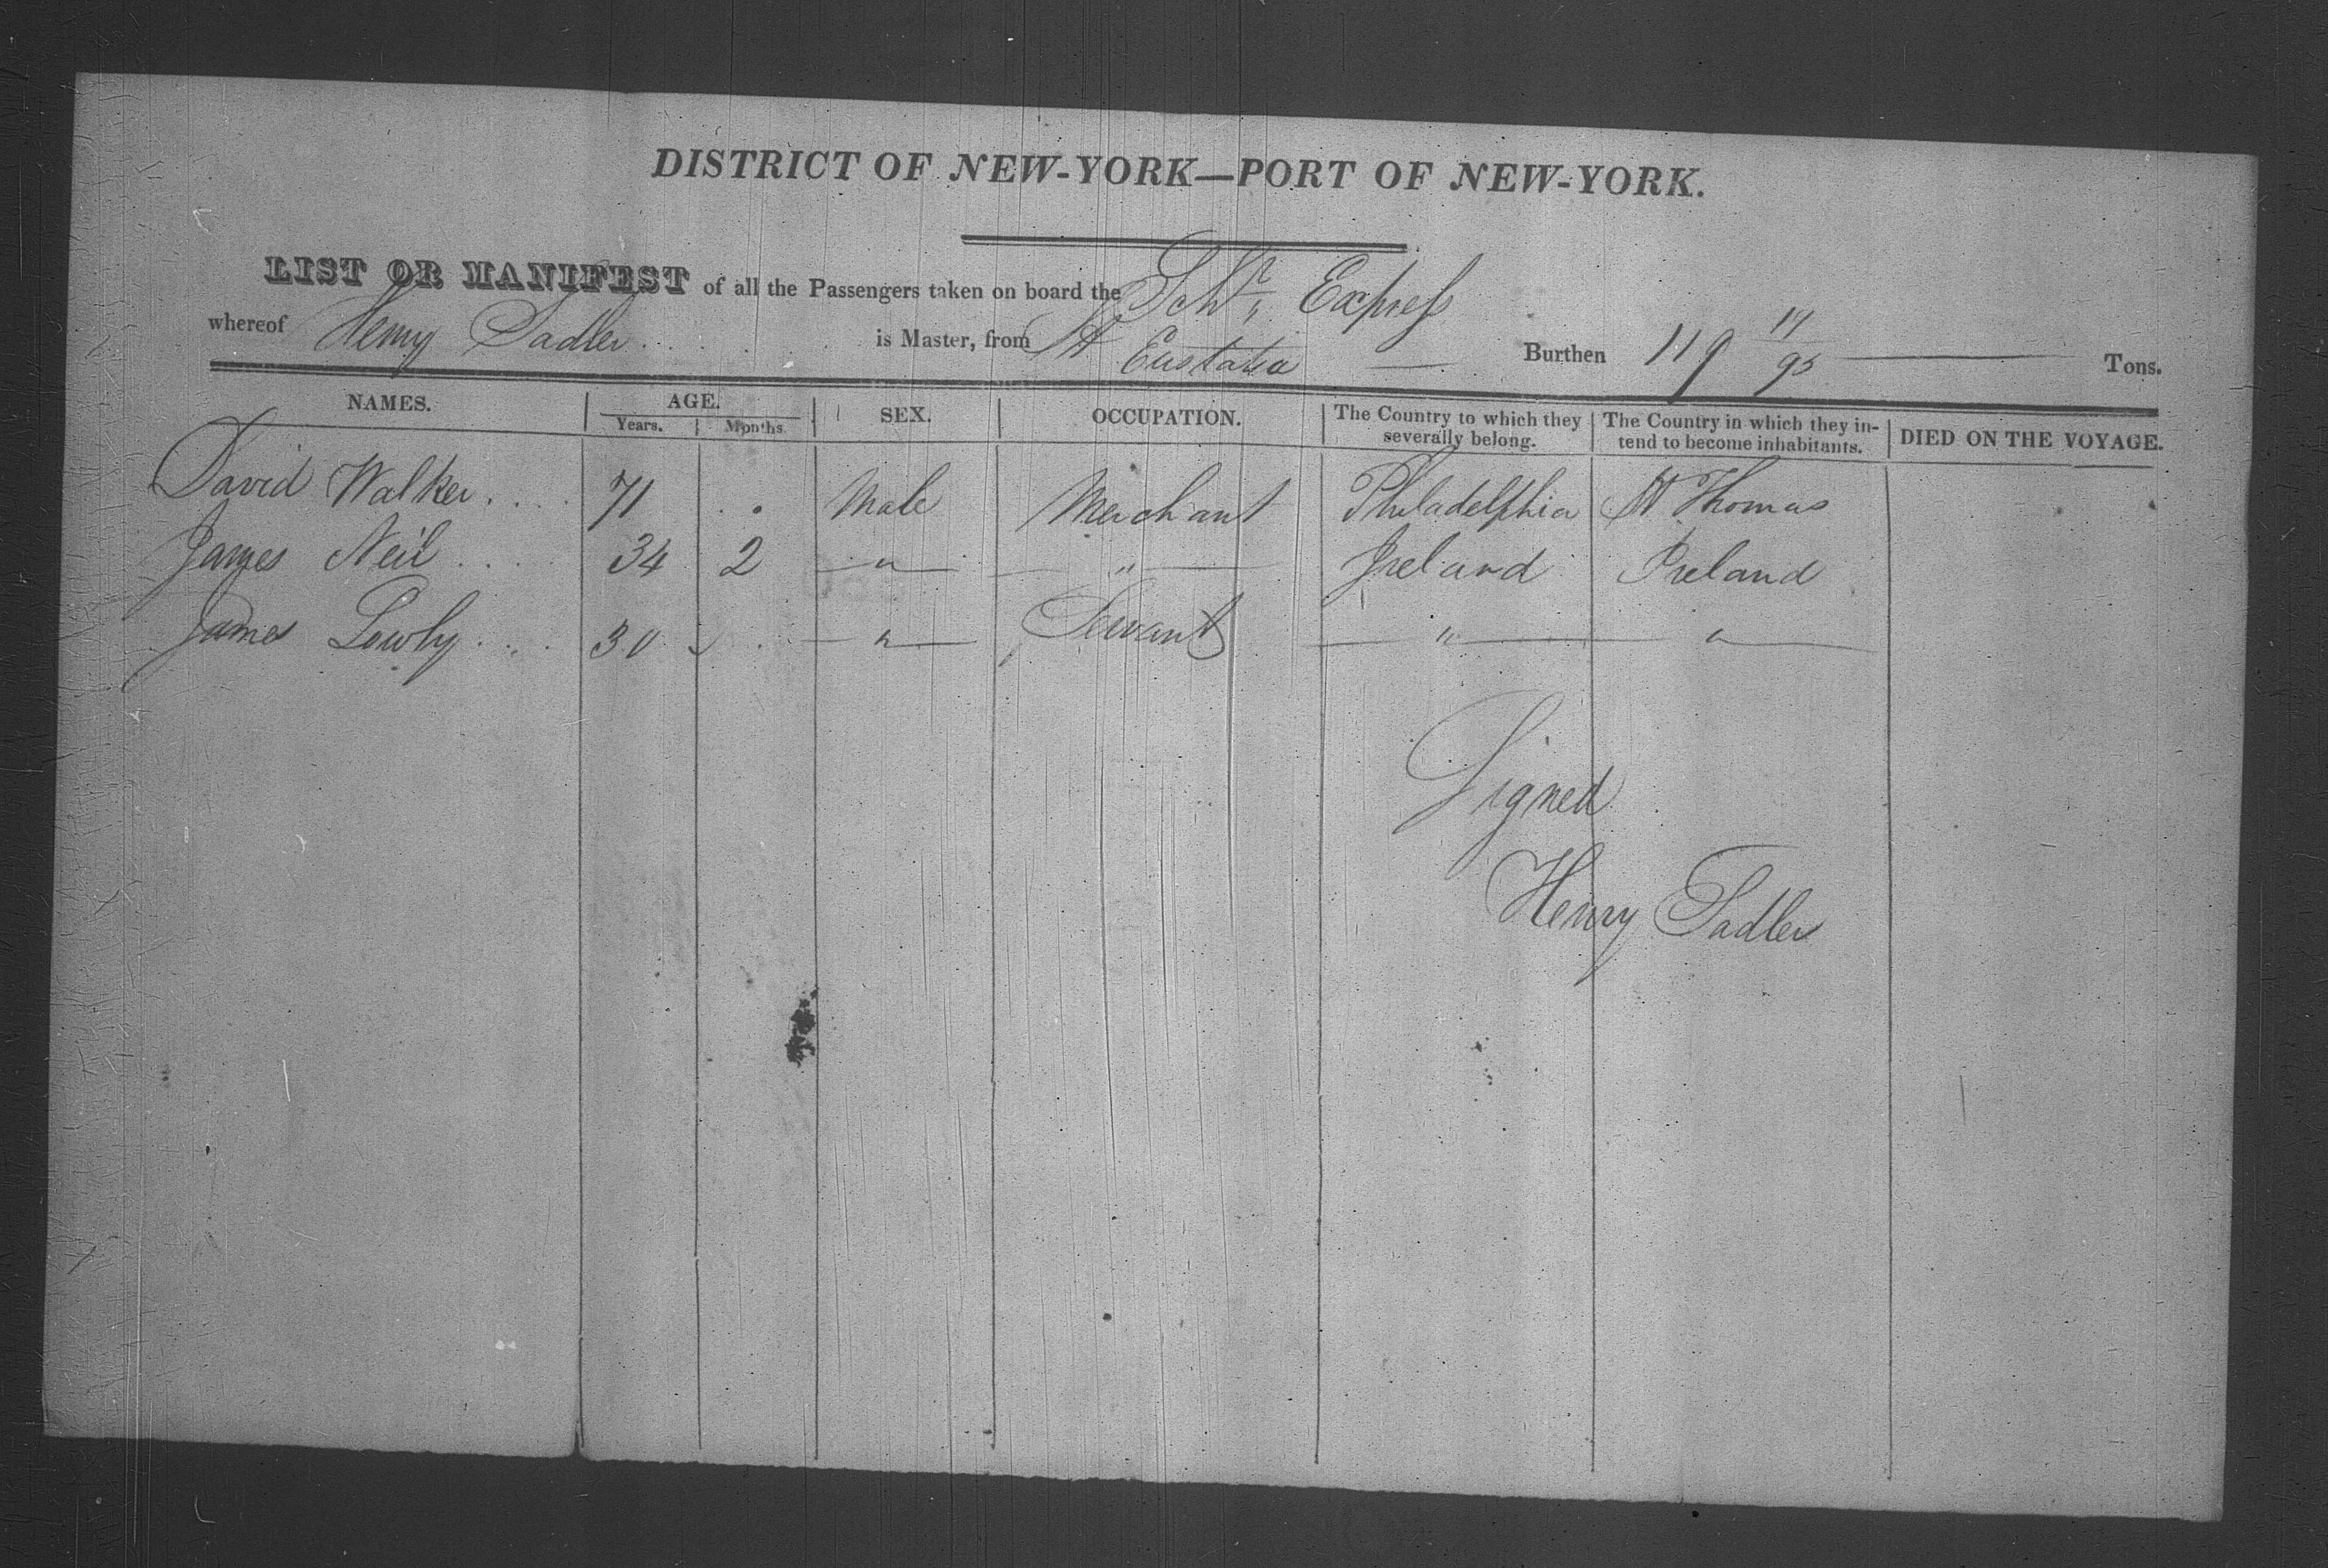 DISTRICT OF NEW-YORK—PORT OF NEW-YORK.
LIST OR MANIFEST of all the Passengers taken on board the Schr. Express
whereof Henry Sadler is Master, from St Eustatia Burthen 119 19/95 Tons.
NAMES. AGE. SEX. OCCUPATION. The Country to which they severally belong. The Country in which they intend to become inhabitants. DIED ON THE VOYAGE.
Years. Months
David Walker.... 71 . . Male Merchant Philadelphia St Thomas
James Neil .... 34 2 — " — — " — Ireland Ireland
James .... 30 . — " — Servant — " — — " —
Signed
Henry Sadler